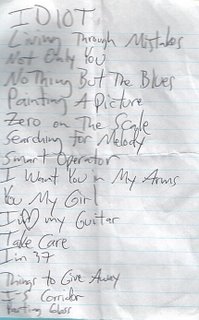 IDIOT.
Living Through Mistakes
Not Only You
Nothing But The Blues
Painting A Picture
Zero on The Scale
Searching For Melody
Smart Operator
I Want You in My Arms
You My Girl
I ♡ my Guitar
Take Care
I'm 37
Things to Give Away
I-5 Corridor
Parting Glass